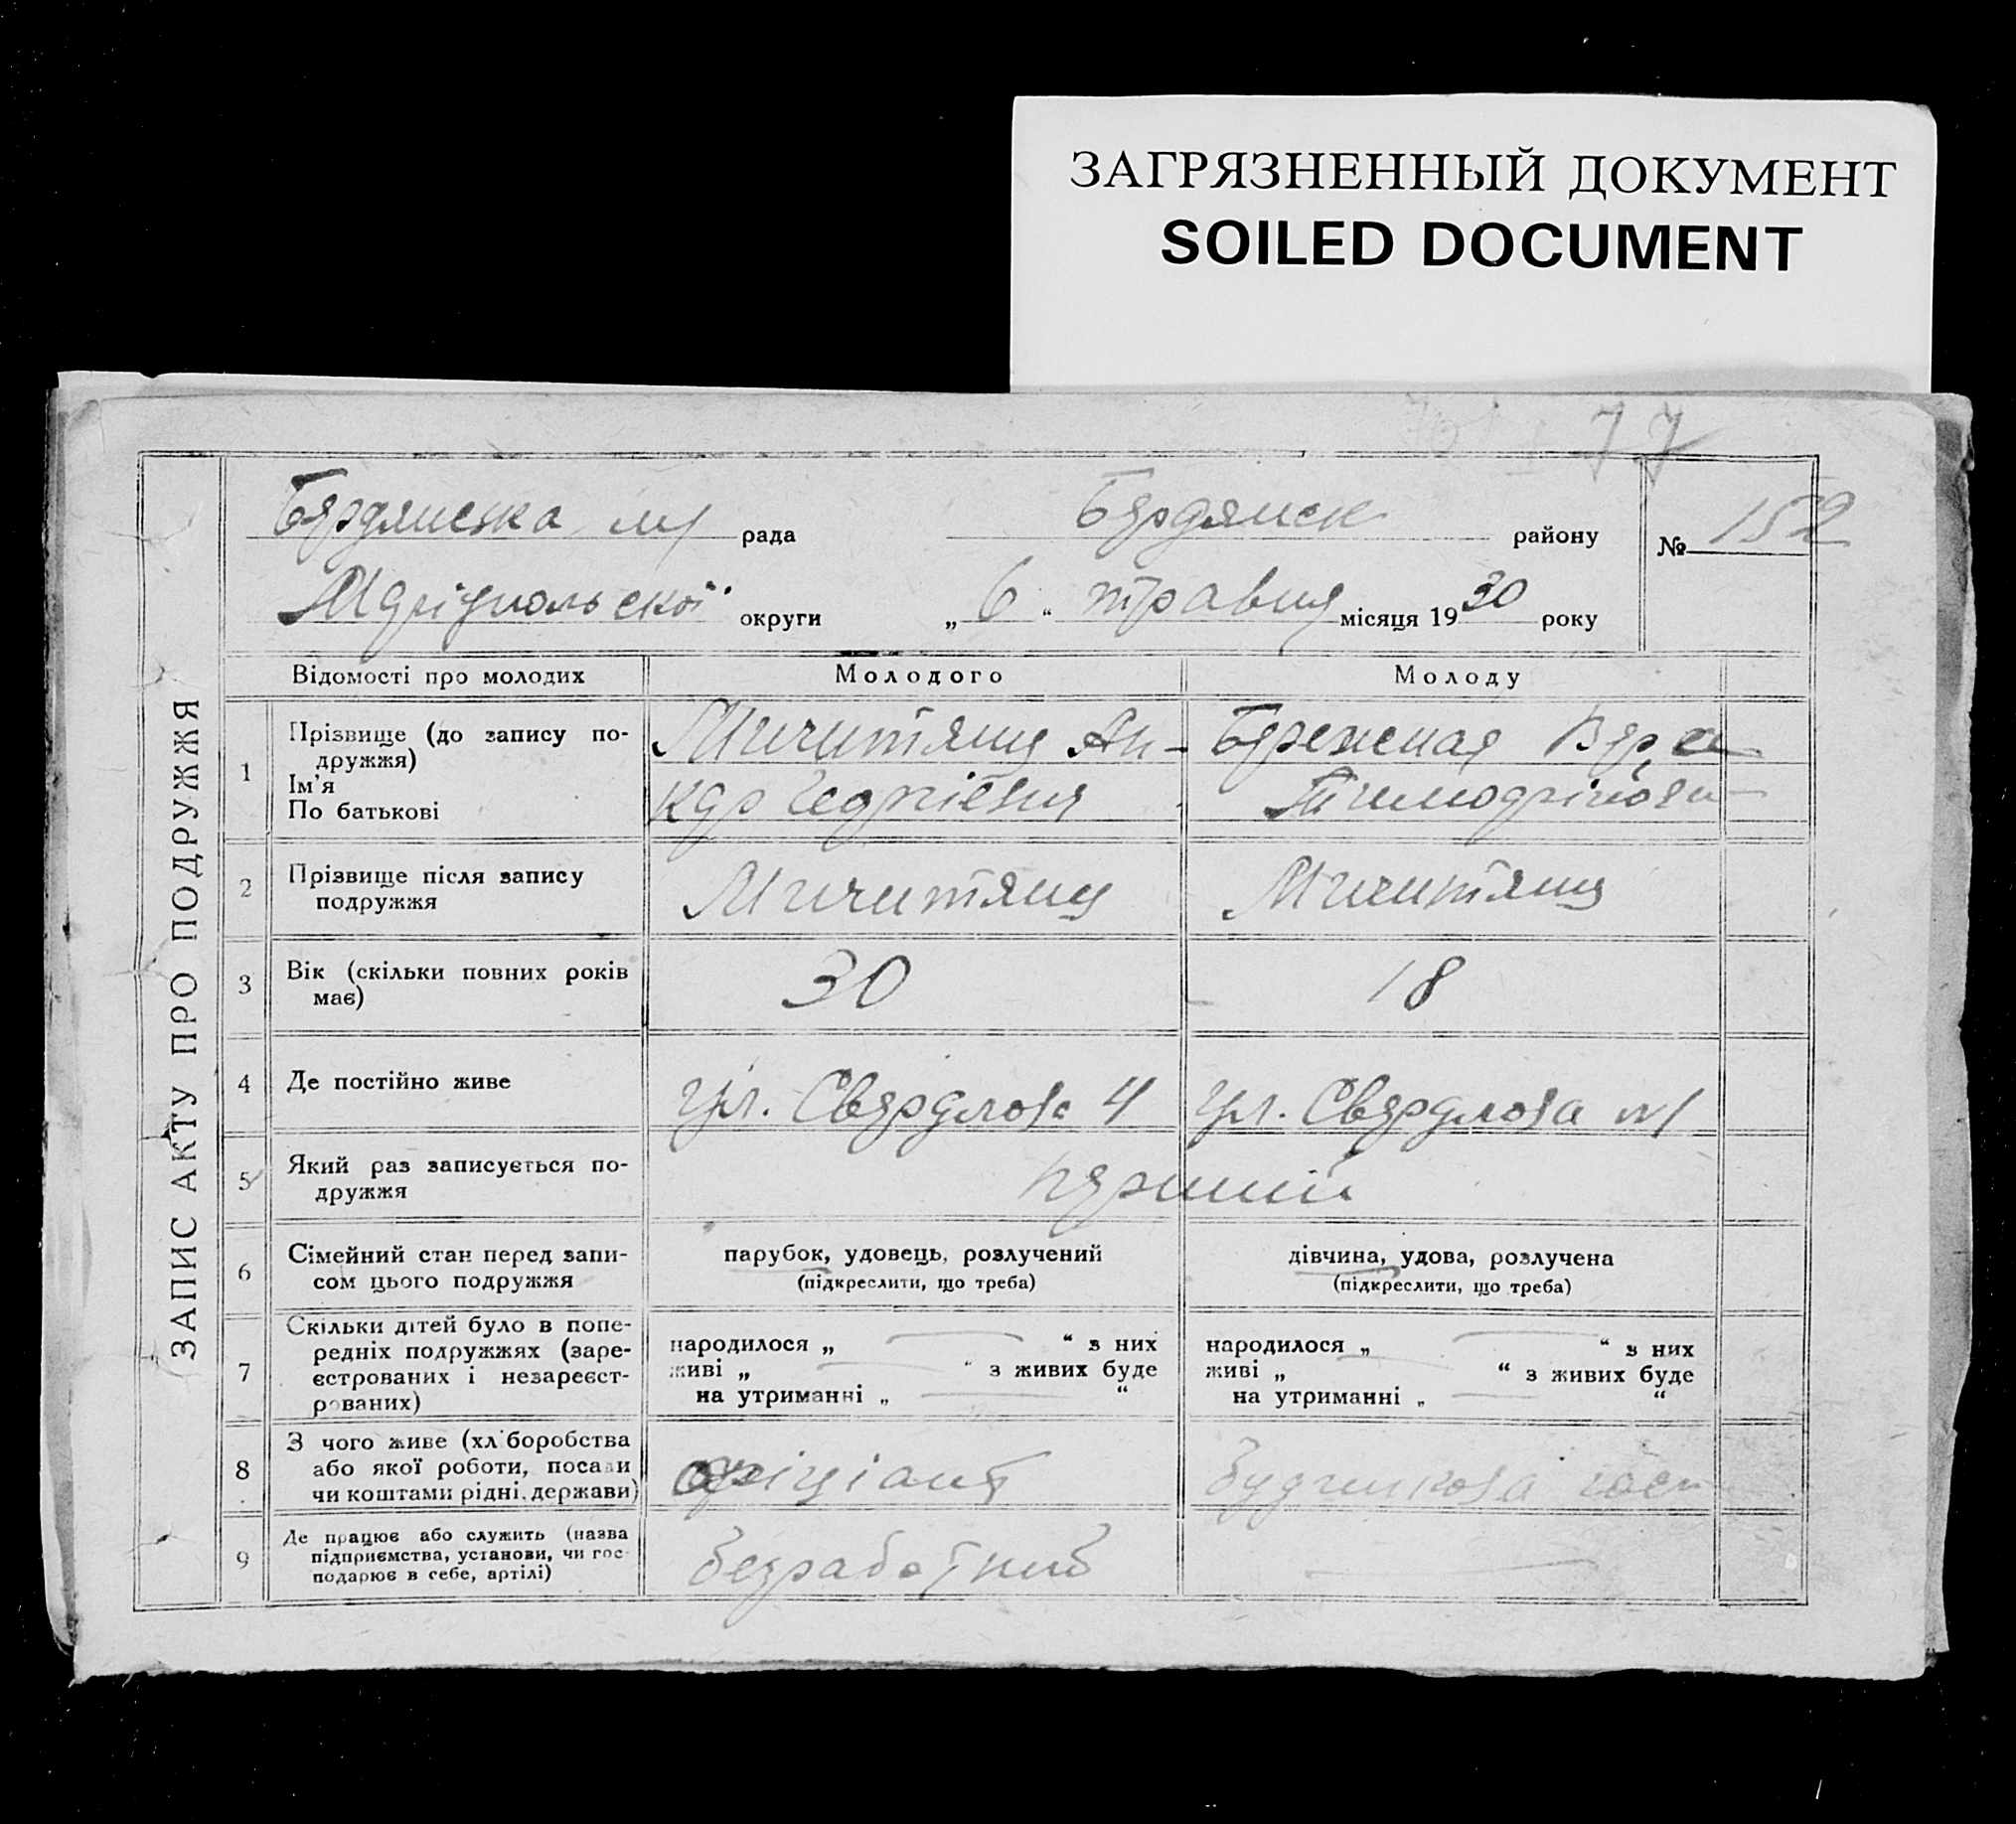 ЗАГРЯЗНЕННЫЙ ДОКУМЕНТ
SOILED DOCUMENT
77
Бердянська м/ рада Бердянск району № 152
Маріупольської округи „ 6 “ травня місяця 1930 року
ЗАПИС АКТУ ПРО ПОДРУЖЖЯ
Відомості про молодих Молодого Молоду
1 Прізвище (до запису по-
дружжя)
Ім'я
По батькові
Бережная Вера
2 Прізвище після запису
подружжя
3 Вік (скільки повних років
має) 30 18
4 Де постійно живе ул. Свердлова 4 ул. Свердлова №1
5 Який раз записується по-
дружжя перший
6 Сімейний стан перед запи-
сом цього подружжя
парубок, удовець, розлучений дівчина, удова, розлучена
(підкреслити, що треба) (підкреслити, що треба)
7 Скільки дітей було в попе-
редніх подружжях (заре-
єстрованих і незареєст-
рованих)
народилося „ — “ з них народилося „ — “ з них
живі „ — “ з живих буде живі „ — “ з живих буде
на утриманні „ — “ на утриманні „ — “
8 З чого живе (хліборобства
або якої роботи, посади
чи коштами рідні, держави)
офіціант
9 Де працює або служить (назва
підприємства, установи, чи гос-
подарює в себе, артілі)
—